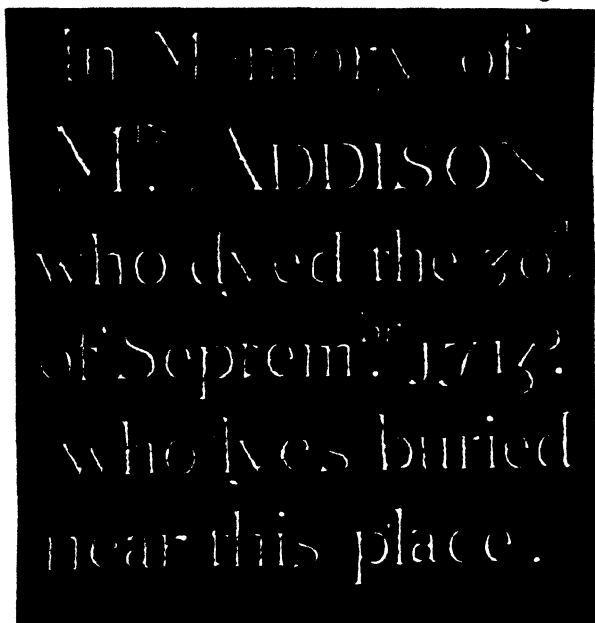 in Memory of
Mrs. ADDISON
who dyed the 30th
of Septembr. 1715.
who lyes buried
near this place.